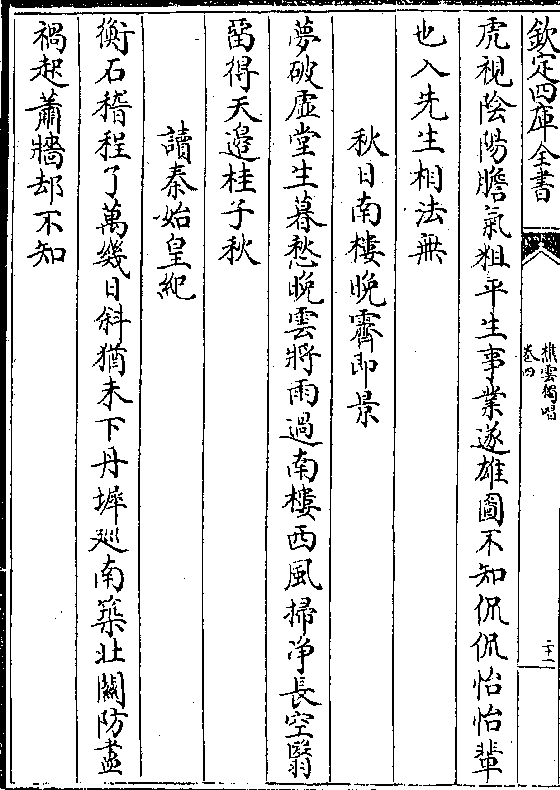 欽定四庫全書
樵雲獨唱
卷四
二十二
虎視陰陽膽氣粗平生事業遂雄圖不知侃侃怡怡輩
也入先生相法無
秋日南樓晚霽即景
夢破虛堂生暮愁晚雲將雨過南樓西風掃浄長空翳
留得天邉桂子秋
讀秦始皇紀
衡石稽程了萬幾日斜猶未下丹墀廵南築北關防盡
禍起蕭牆却不知